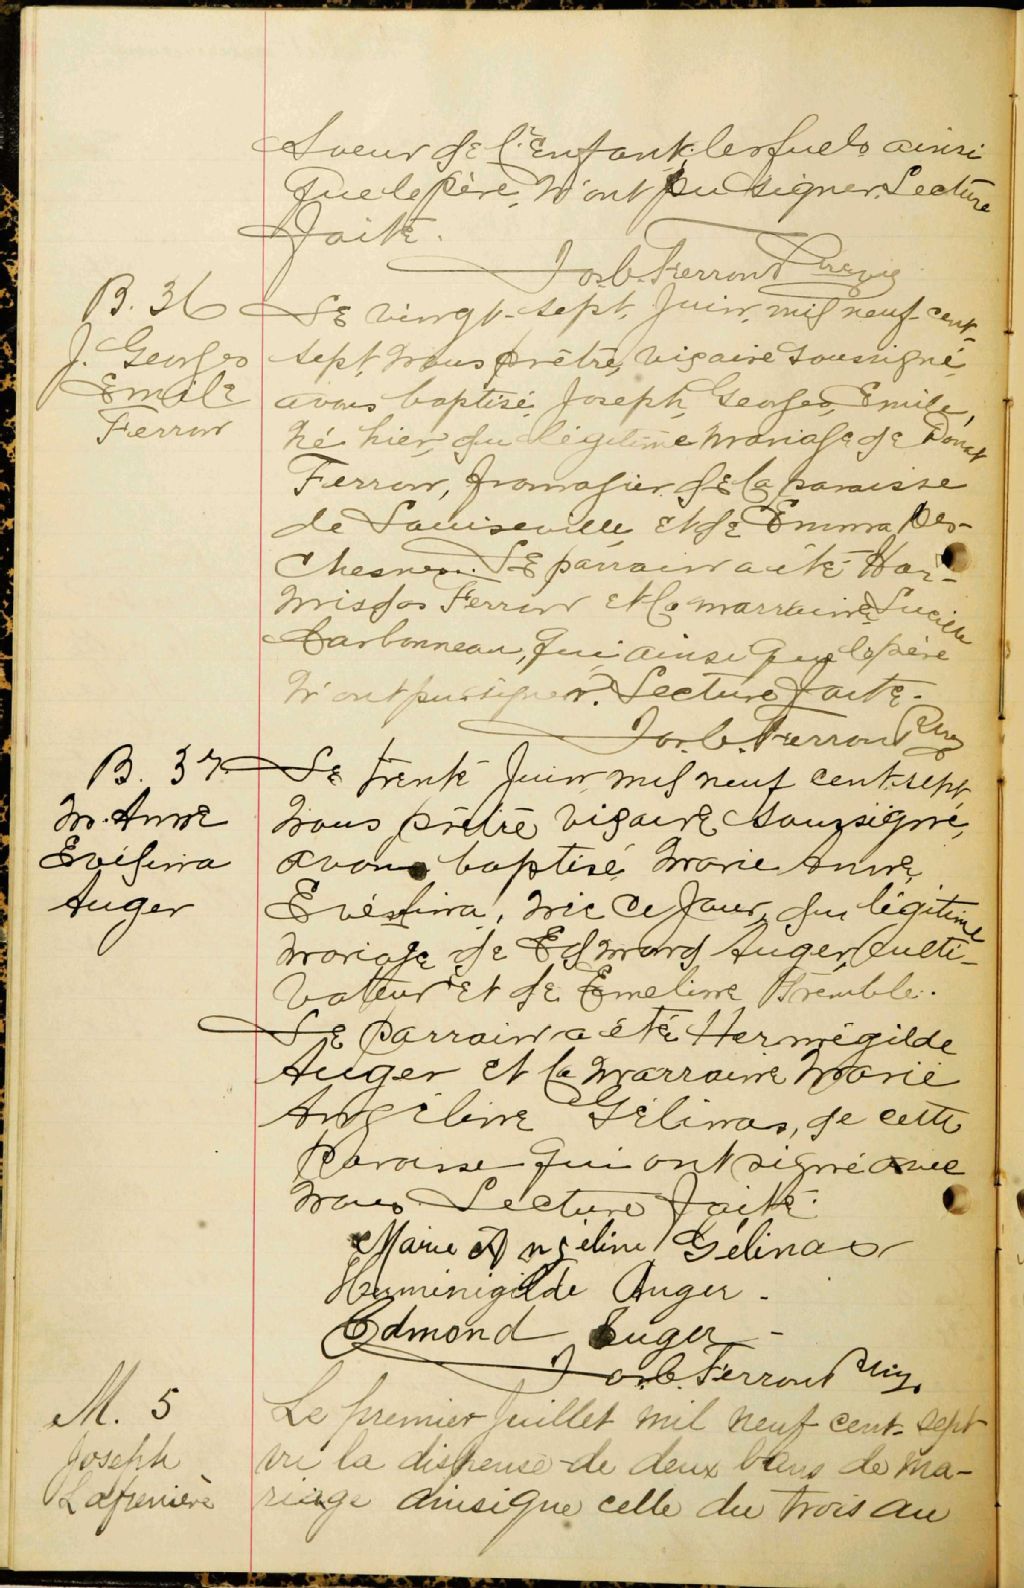 Soeur de l'Enfant, lesquels ainsi
que le père, n'ont pu signer. Lecture
Faite.
Jos. C. Ferron Ptre Vic
B. 36
J. Georges
Emile
Ferron
Le vingt-sept, Juin, mil neuf-cent-
sept, nous prêtre, vicaire soussigné,
avons baptisé, Joseph, Georges, Emile,
né hier, du légitime mariage de Donat
Ferron, fromagier de la paroisse
de Louiseville et de Emma Des-
chesnes. Le parrain a été Hor-
misdas Ferron et la marraine, Lucille
Carbonneau, qui ainsi que le père
n'ont pu signer. Lecture faite.
Jos. C. Ferron
B. 37
M. Anne
Evélina
Auger
Le trente Juin, mil neuf cent-sept,
Nous prêtre vicaire soussigné,
avons baptisé, Marie Anne,
Evélina, née ce jour, du légitime
mariage de Edmond Auger, culti-
vateur et de Emeline Tremble.
Le parrain a été Herménégilde
Auger et la marraine Marie
Angéline Gélinas, de cette
paroisse qui ont signé avec
nous. Lecture faite.
Marie Angéline Gélinas
Herminigilde Auger.
Edmond Auger -
Jos. C. Ferron
M. 5
Joseph
Lafrenière
Le premier Juillet mil neuf cent-sept
vu la dispense de deux bans de ma-
riage ainsique celle du trois au